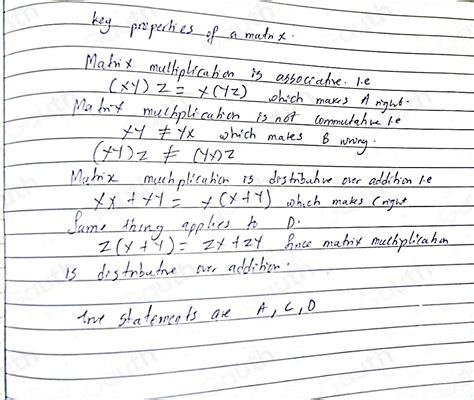 key properties of a matrix.
Matrix multiplication is associative. I.e
(XY) Z = X(YZ) which makes A right.
Matrix multiplication is not commutative I.e
XY ≠ YX which makes B wrong.
(XY)Z ≠ (YX)Z
Matrix multiplication is distributive over addition I.e
XX + XY = X(X+Y) which makes C right
Same thing applies to D.
Z(X+Y) = ZX+ZY Since matrix multiplication
is distributive over addition.
true statements are A, C, D